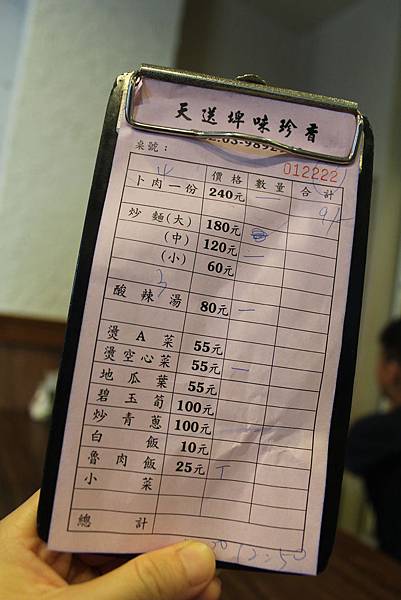 天送埤味珍香
桌號： 012222
價格 數量 合計
卜肉一份 240元 一
炒麵(大) 180元
(中) 120元 一
(小) 60元
酸辣湯 80元 一
燙A菜 55元
燙空心菜 55元 一
地瓜葉 55元
碧玉筍 100元
炒青蔥 100元 一
白飯 10元
魯肉飯 25元 T
小菜
總計